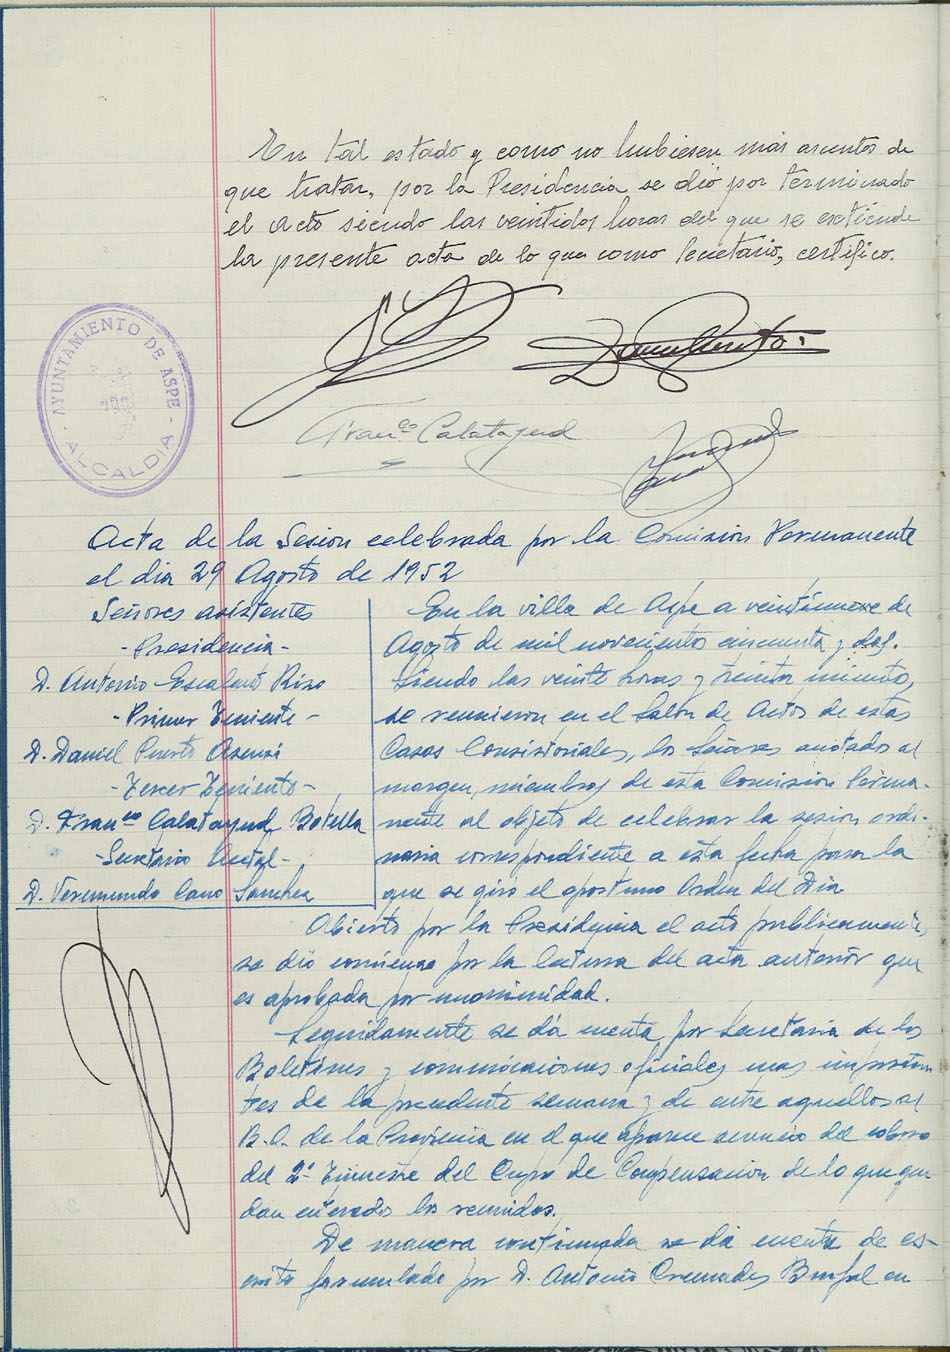 En tal estado y como no hubiesen más asuntos de
que tratar, por la Presidencia se dió por terminado
el acto siendo las veintidos horas del que se extiende
la presente acta de lo que como Secretario, certifico.
AYUNTAMIENTO DE ASPE
ALCALDIA
Franco Calatayud
Acta de la Sesion celebrada por la Comision Permanente
el dia 29 Agosto de 1952
Señores asistentes
-Presidencia-
D. Antonio Escalant Rizo
-Primer Teniente-
D. Daniel Puerto Asensi
-Tercer Teniente-
D. Franco Calatayud Botella
-Secretario Acctal-
D. Veremundo Cano Sanchez
En la villa de Aspe a veintinueve de
Agosto de mil novecientos cincuenta y dos.
Siendo las veinte horas y treinta minutos,
se reunieron en el Salon de Actos de estas
Casas Consistoriales, los Señores anotados al
margen, miembros de esta Comision Perma-
nente al objeto de celebrar la sesion ordi-
naria correspondiente a esta fecha para la
que se giro el oportuno Orden del Dia
Abierto por la Presidencia el acto publicamente,
se dio comienzo por la lectura del acta anterior que
es aprobada por unanimidad.
Seguidamente se dá cuenta por Secretaria de los
Boletines y comunicaciones oficiales mas importan
tes de la precedente semana y de entre aquellos al
B.O. de la Provincia en el que aparece anuncio del cobro
del 2º Trimestre del Cupo de Compensacion de lo que que
dan enterados los reunidos.
De manera continuada se dá cuenta de es-
crito formulado por D. Antonio Cremades en